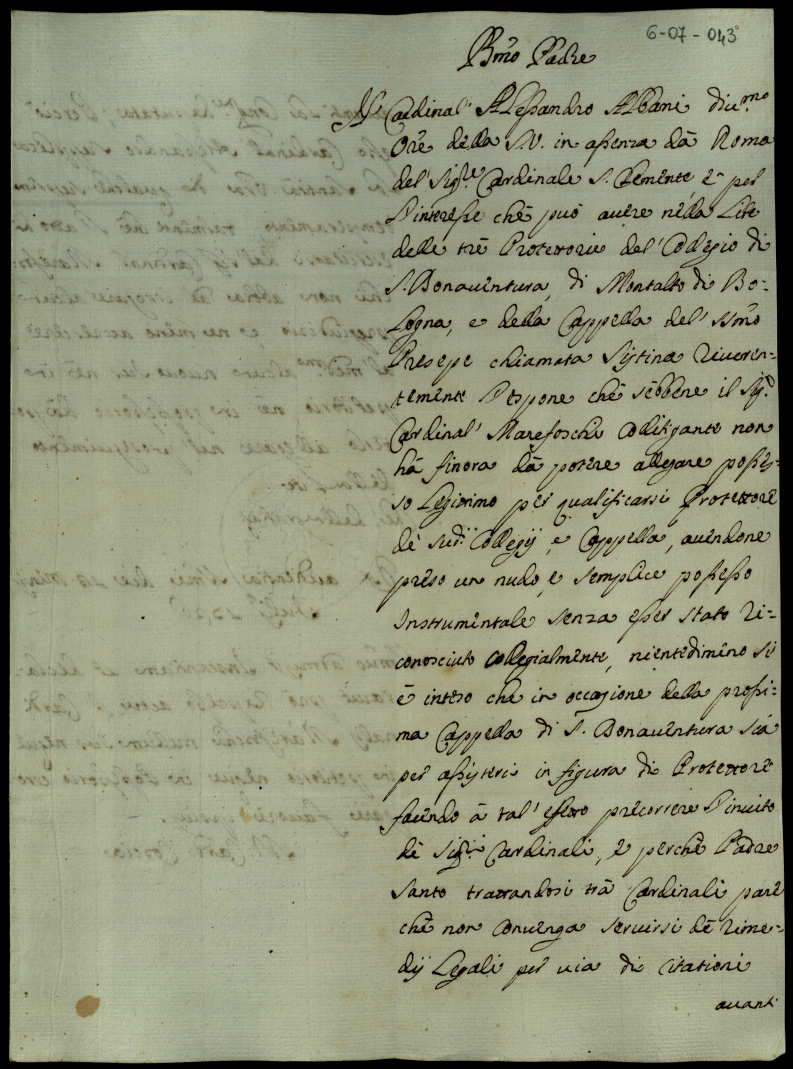 6-07-043
Bmo Padre
Il Cardinal' Alessandro Albani diu.mo
Ore della S.V. in assenza dà Roma
del' Sig.re Cardinale S. Clemente, e per
l'interesse chè può auere nella Lite
delle trè Protettorie del' Collegio di
S. Bonauentura, di Montalto di Bo=
logna, e della Cappella del' SSmo
Presepe chiamata Sistina riueren=
temente l'espone chè sebbene il Sig.
Cardinal' Marefoschi Collitigante non
hà finora dà potere allegare posses=
so Legitimo per qualificarsi Protettore
dè sud.i Collegij, e Cappella, auendone
preso un nudo, e semplice possesso
Instrumentale senza esser stato ri=
conosciuto collegialmente, nientedimeno si
è inteso che in occasione della prossi=
ma Cappella di S. Bonauentura sia
per assisterui in figura di Protettore
facendo à tal' effetto precorrere l'inuito
dè Sig.ri Cardinali, e perchè Padre
Santo trattandosi trà Cardinali pare
chè non conuenga seruirsi dè rime=
dij Legali per uia di citationi
auanti